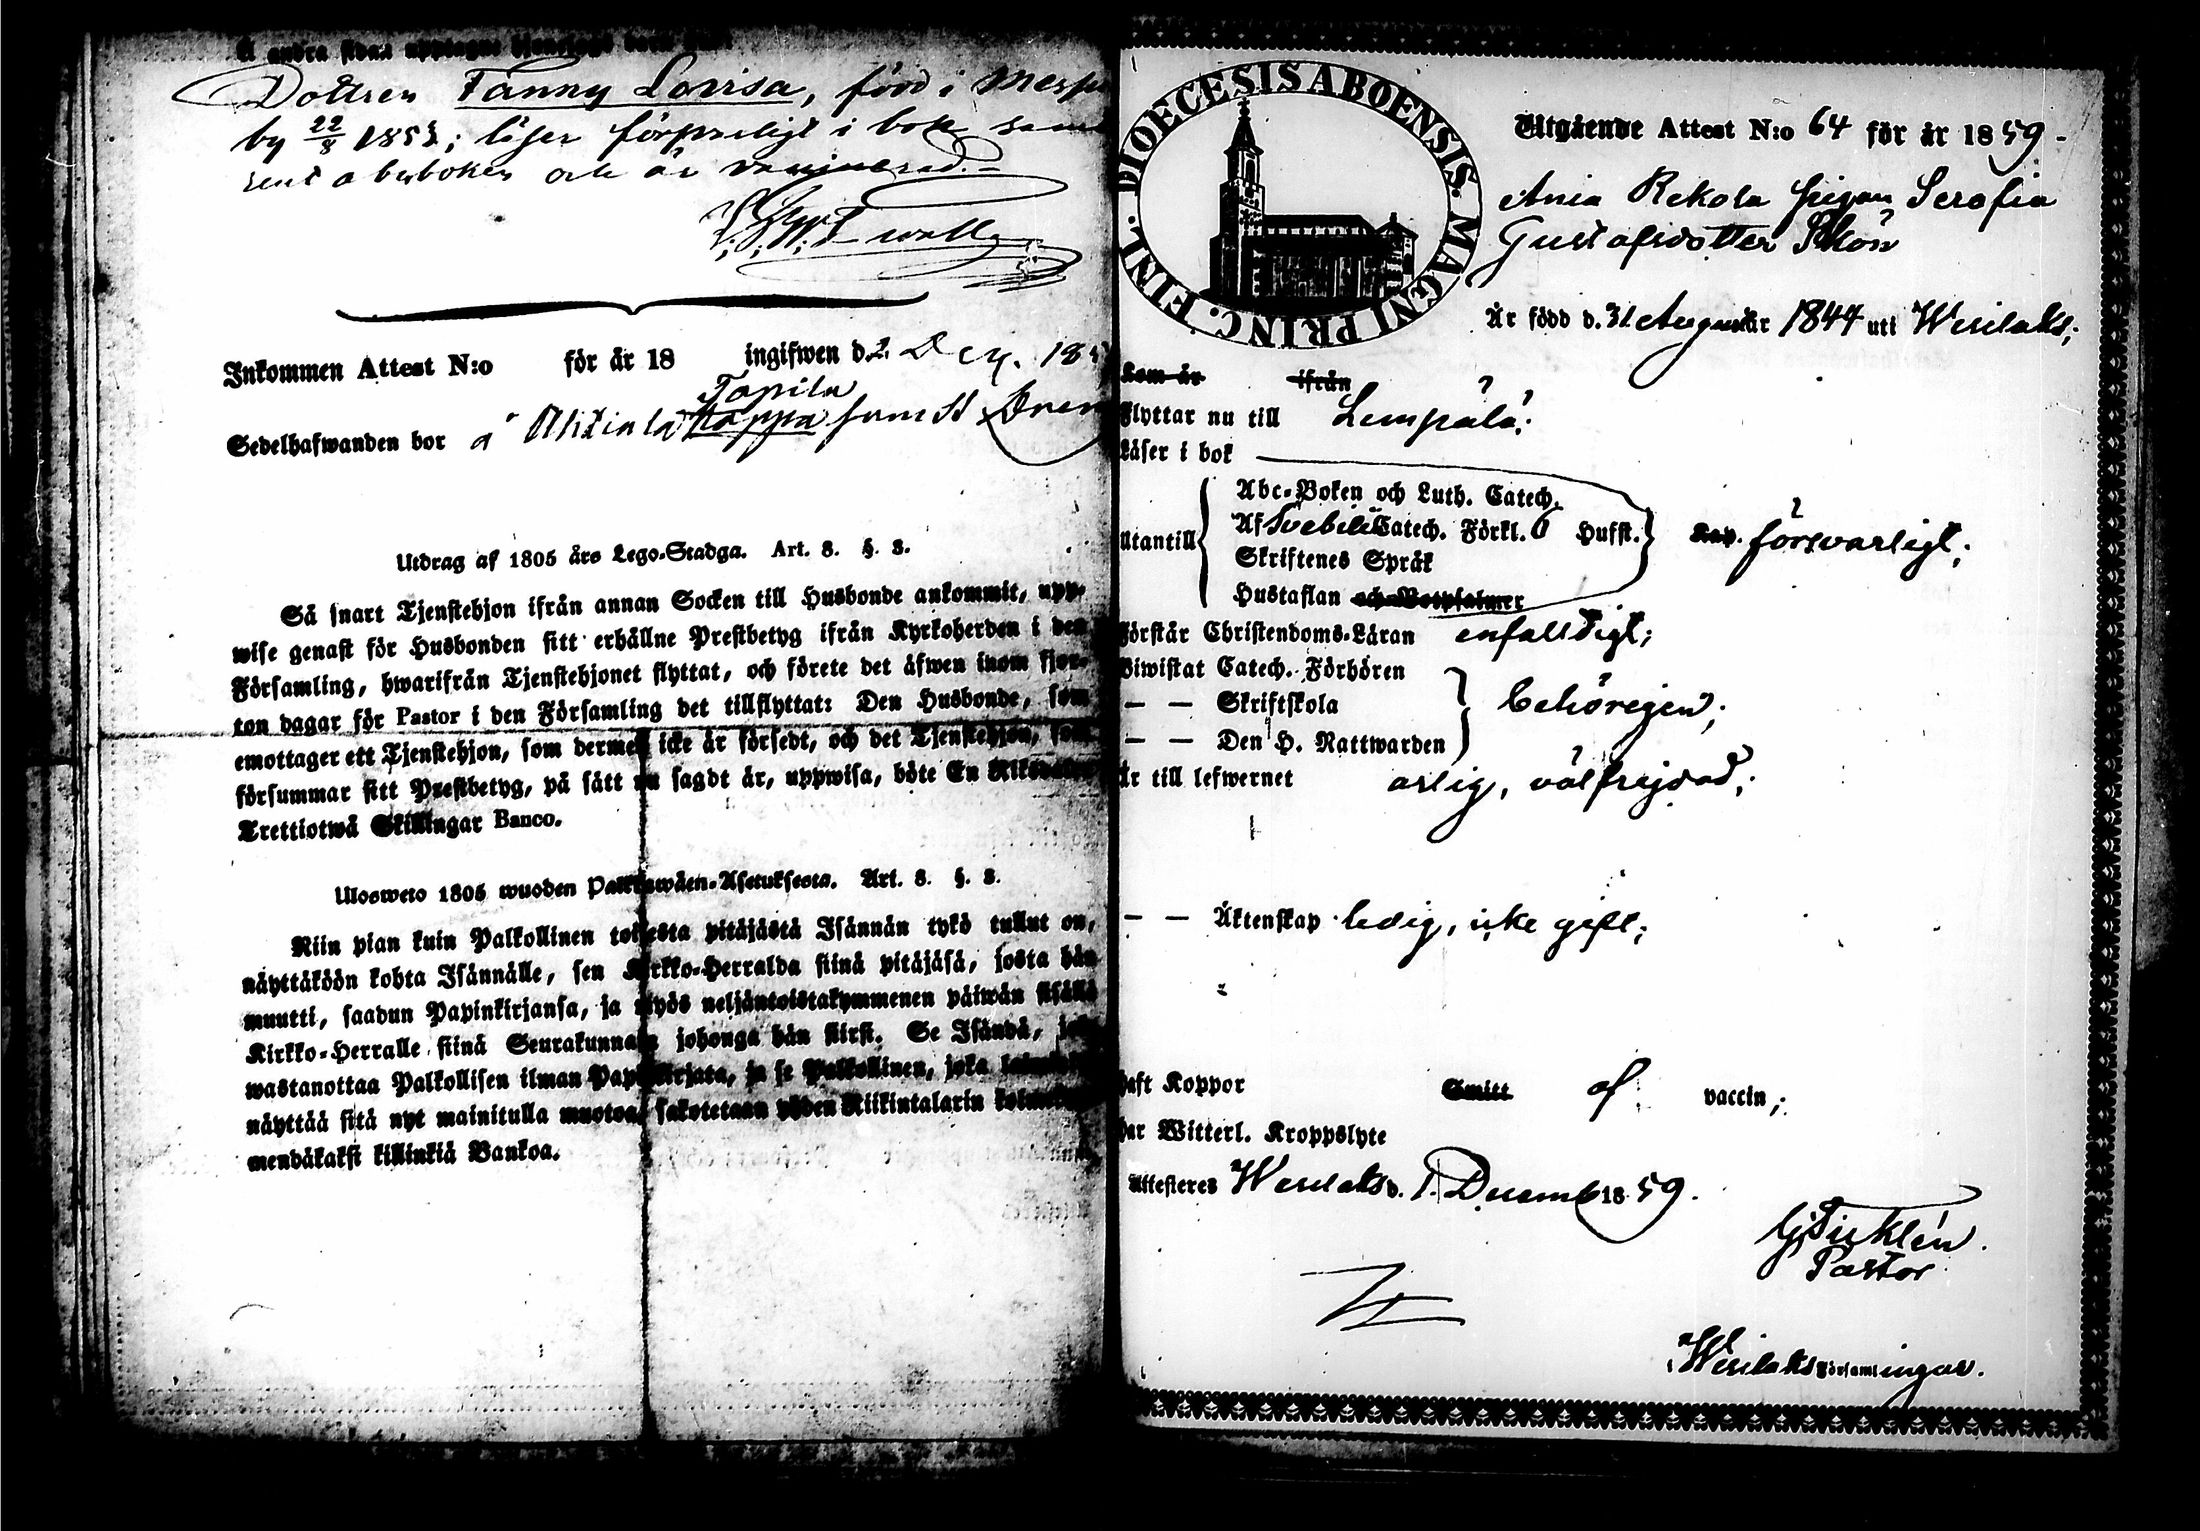 Dottren Fanny Lovisa, född i
by 22/8 185; läser försvarligt i bok samt
abcboken och är vaccinerad.
Inkommen Attest N:o för år 18 ingifwen d. 2 18
Tapila
Sedelhafwanden bor å
Utdrag af 1805 års Lego-Stadga. Art. 8. §. 8.
Så snart Tjenstehjon ifrån annan Socken till Husbonde ankommit, upp-
wise genast för Husbonden sitt erhållne Prestbetyg ifrån Kyrkoherden i den
Församling, hwarifrån Tjenstehjonet flyttat, och förete det äfwen inom fjor-
ton dagar för Pastor i den Församling det tillflyttat: Den Husbonde, som
emottager ett Tjenstehjon, som dermed icke är försedt, och det Tjenstehjon, som
försummar sitt Prestbetyg, på sätt nu sagdt är, uppwisa, böte En Riksdaler
Trettiotwå Skillingar Banco.
Ulosweto 1805 wuoden Palkkawäen-Asetuksesta. Art. 8. §. 8.
Niin pian kuin Palkollinen toisesta pitäjästä Isännän tykö tullut on,
näyttäköön kohta Isännälle, sen Kirkko-Herralda siinä pitäjäsä, josta hän
muutti, saadun Papinkirjansa, ja myös neljäntoistakymmenen päiwän sisällä
Kirkko-Herralle siinä Seurakunnasa johonga hän siirsi. Se Isändä, joka
wastanottaa Palkollisen ilman Papinkirjata, ja se Palkollinen, joka
näyttää sitä nyt mainitulla muotoa, sakotetaan yhden Riikintalarin
mendäkaksi killinkiä Bankoa.
DIOECESIS ABOENSIS. MAGNI PRINC. FINL.
Utgående Attest N:o 64 för år 1859
Rekola pigan Serafia
Gustafsdotter
Är född d. 31 August år 1844 uti Wesilaks;
Kom år ifrån
Flyttar nu till Lempälä;
Läser i bok
Abc-Boken och Luth. Catech.
Utantill Af Svebilii Catech. Förkl. 6 Hufst. Kap. försvarligt;
Skriftenes Språk
Hustaflan och Botpsalmer
Förstår Christendoms-Läran enfalldigt;
Biwistat Catech. Förhören
— — Skriftskola behörigen;
— — Den H. Nattwarden
Är till lefwernet ärlig, välfrejdad;
— — Äktenskap ledig, icke gift;
Haft Koppor Smitt af vaccin;
Har Witterl. Kroppslyte
Attesteres Wesilaks d. 1. Decemb 1859.
Pastor
Wesilaks Församlingar.